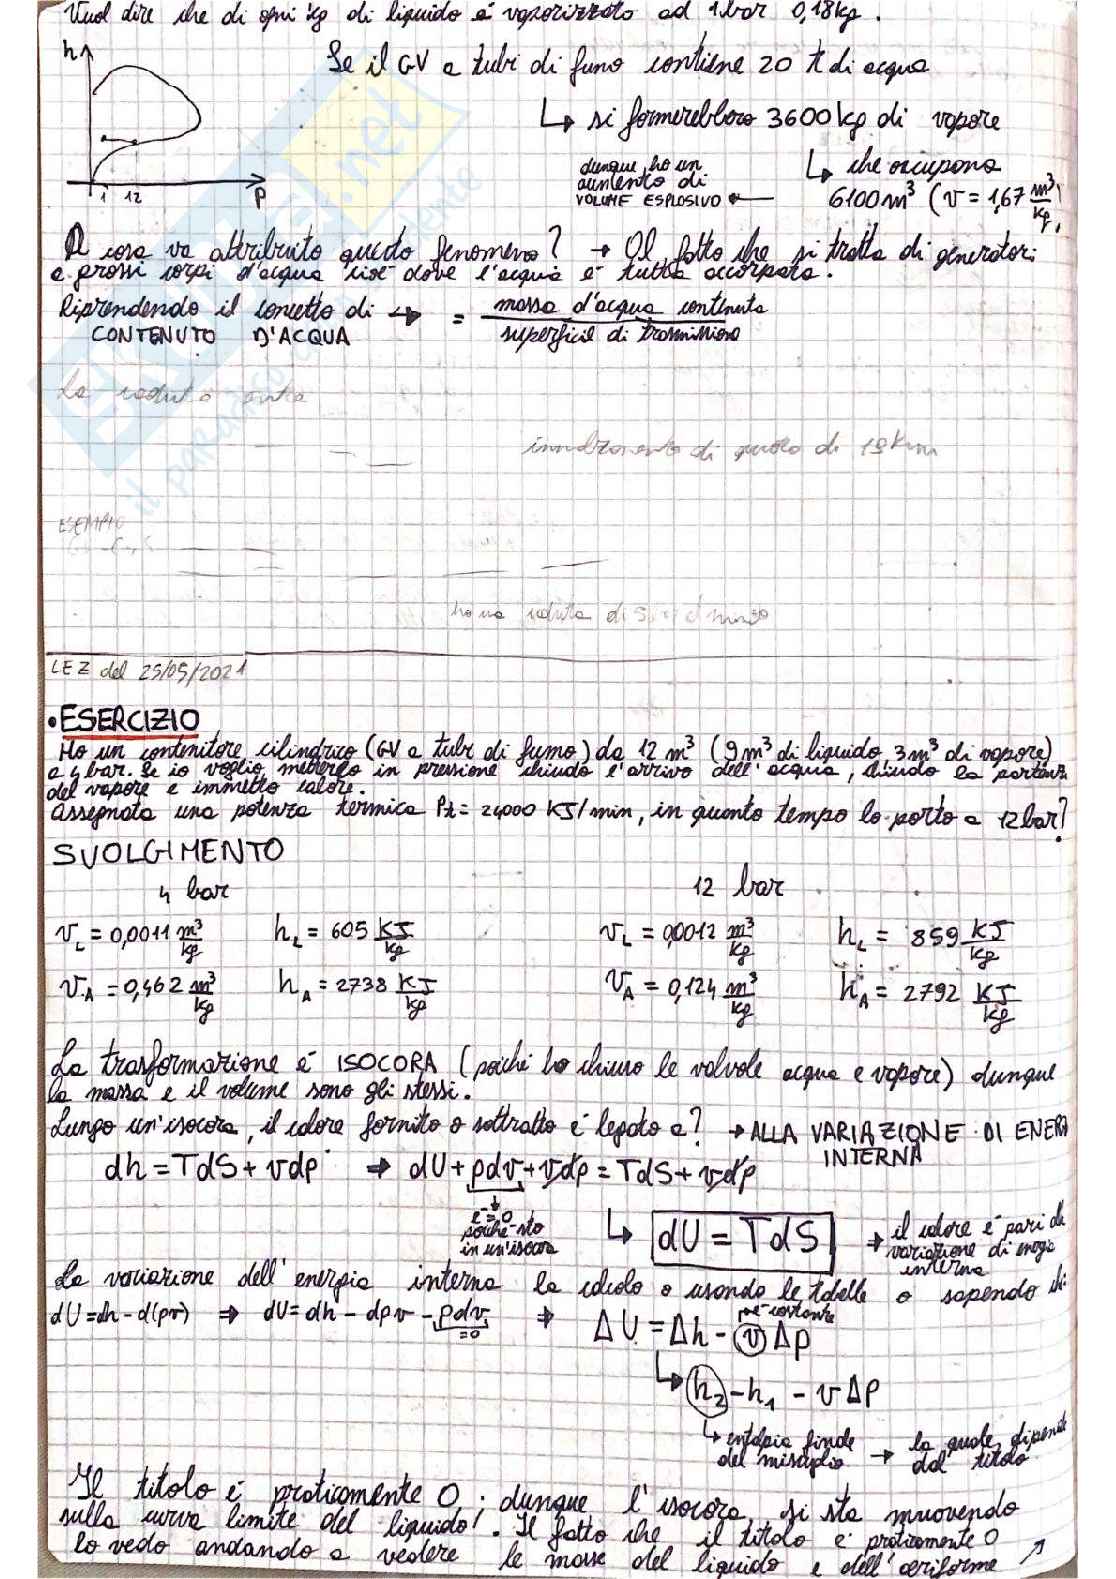 Vuol dire che di ogni kg di liquido è vaporizzato ad 1 bar 0,18 kg.
h
Se il GV a tubi di fumo contiene 20 t di acqua
↳ si formerebbero 3600 kg di vapore
↳ che occupano
6100 m³ (v = 1,67 m³/kg)
dunque, ho un
aumento di
VOLUME ESPLOSIVO ←
1 12 p
A cosa va attribuito questo fenomeno? → Al fatto che si tratta di generatori
a grossi corpi d'acqua cioè dove l'acqua è tutta accorpata.
Riprendendo il concetto di → = massa d'acqua contenuta / superficie di trasmissione
CONTENUTO D'ACQUA
di quota di 19 km
ESEMPIO
LEZ del 25/05/2021
• ESERCIZIO
Ho un contenitore cilindrico (GV a tubi di fumo) da 12 m³ (9 m³ di liquido, 3 m³ di vapore)
a 4 bar. Se io voglio metterlo in pressione chiudo l'arrivo dell'acqua, chiudo la portata
del vapore e immetto calore.
Assegnata una potenza termica Pt = 24000 KJ/min, in quanto tempo lo porto a 12 bar?
SVOLGIMENTO
4 bar 12 bar
v_L = 0,0011 m³/kg h_L = 605 KJ/kg v_L = 0,0012 m³/kg h_L = 859 KJ/kg
v_A = 0,462 m³/kg h_A = 2738 KJ/kg v_A = 0,124 m³/kg h_A = 2792 KJ/kg
La trasformazione è ISOCORA (poiché ho chiuso le valvole acqua e vapore) dunque
la massa e il volume sono gli stessi.
Lungo un'isocora, il calore fornito o sottratto è legato a? → ALLA VARIAZIONE DI ENERGIA
INTERNA
dh = TdS + vdp ⇒ dU + pdv + vdp = TdS + vdp
è = 0
poiché sto
in un'isocora
↳ dU = TdS → il calore è pari alla
variazione di energia
interna
La variazione dell'energia interna la calcolo o usando le tabelle o sapendo che
dU = dh - d(pv) ⇒ dU = dh - dpv - pdv ⇒ ΔU = Δh - v Δp
= 0
perché costante
↳ h₂ - h₁ - v Δp
↳ entalpia finale
del miscuglio → la quale dipende
dal titolo
Il titolo è praticamente 0, dunque l'isocora si sta muovendo
sulla curva limite del liquido!. Il fatto che il titolo è praticamente 0
lo vedo andando a vedere le masse del liquido e dell'aeriforme ↗